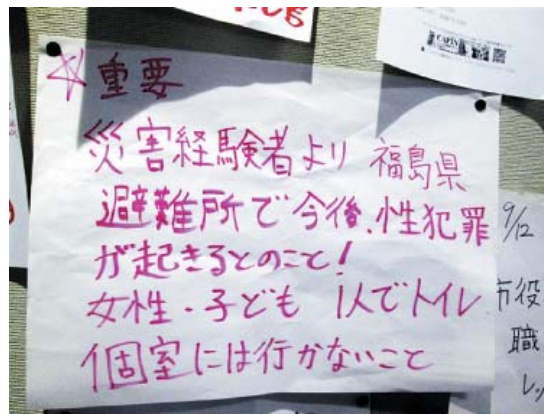 ☆重要
災害経験者より 福島県
避難所で今後、性犯罪
が起きるとのこと!
女性・子ども 1人でトイレ
個室には行かないこと
9/12
市役
職
レッ
CAPIN